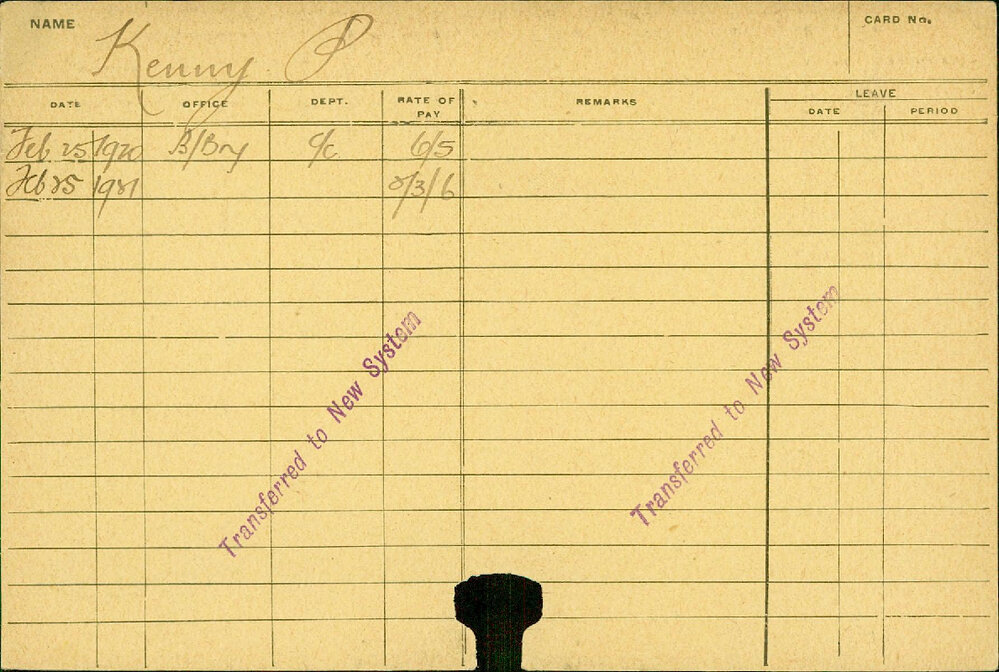 NAME Kenny P CARD No.
DATE OFFICE DEPT. RATE OF PAY REMARKS LEAVE
DATE PERIOD
Feb 25 1920 B/Bry C/C 6/5
Feb 25 1921 /3/6
Transferred to New System
Transferred to New System